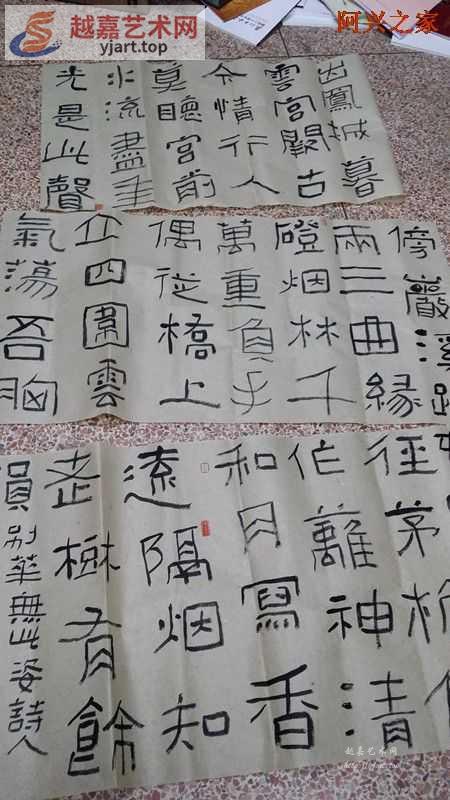 越嘉艺术网
yjart.top
阿兴之家
出鳳城暮
雲宮闕古
今情行人
莫聽宮前
水流盡年
光是此聲
傍巖溪路
兩三曲緣
磴烟林千
萬重負手
偶從橋上
立四圍雲
氣蕩吾胸
徑茅
作離神清
和月寫香
遠隔烟知
老樹有餘
韻別華無此姿詩人
越嘉艺术网